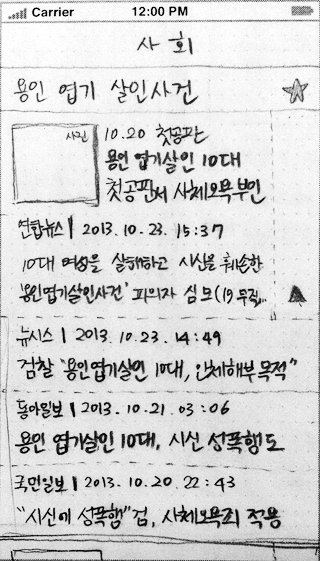 Carrier 12:00 PM
사 회
용인 엽기 살인사건
사진
10.20 첫공판
용인 엽기살인 10대
첫공판서 사체오욕부인
연합뉴스 | 2013.10.23. 15:37
10대 여성을 살해하고 시신을 훼손한
'용인엽기살인사건' 피의자 심 모(19 무직...
뉴시스 | 2013.10.23.14:49
검찰 "용인엽기살인 10대, 인체해부 목적"
동아일보 | 2013.10.21.03:06
용인 엽기살인 10대, 시신 성폭행도
국민일보 | 2013.10.20.22:43
"시신에 성폭행" 검, 사체오욕죄 적용